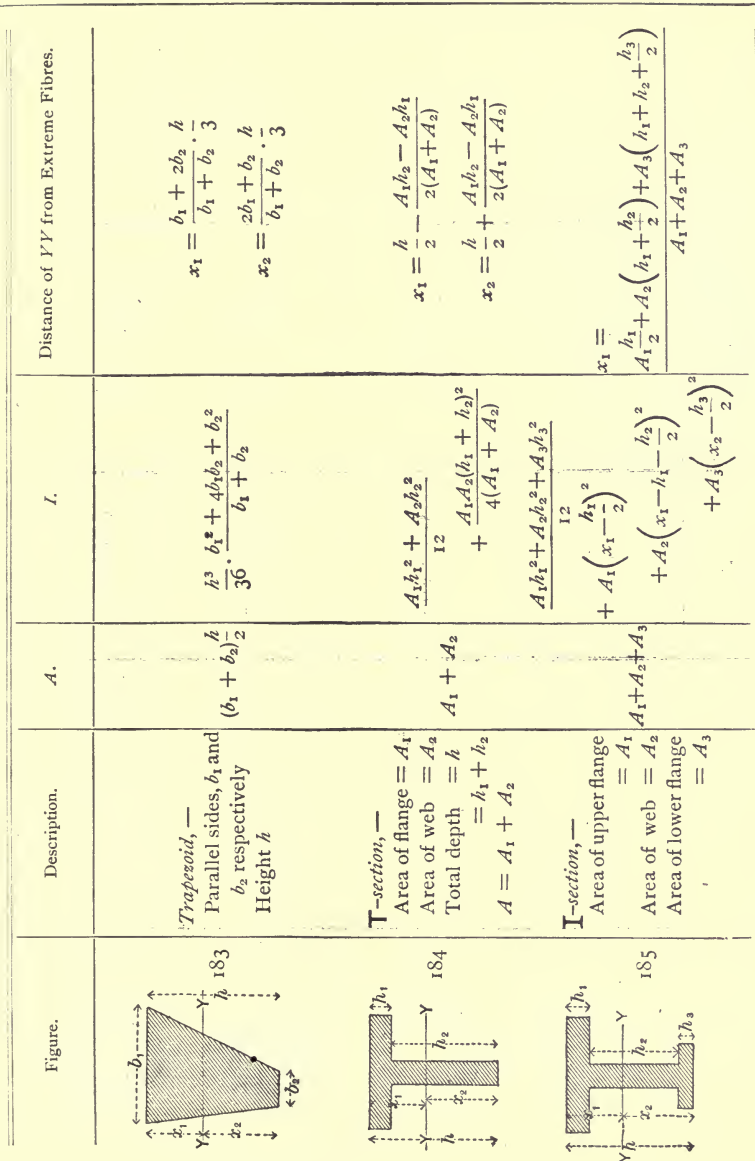 Figure. Description. A. I. Distance of YY from Extreme Fibres.
b₁
x₁
x₂
Y Y
h
b₂
183
Trapezoid,—
Parallel sides, b₁ and
b₂ respectively
Height h
(b₁ + b₂) h/2
h³/36 · (b₁² + 4b₁b₂ + b₂²)/(b₁ + b₂)
x₁ = (b₁ + 2b₂)/(b₁ + b₂) · h/3
x₂ = (2b₁ + b₂)/(b₁ + b₂) · h/3
h₁
x₁
Y Y
h₂
x₂
h
184
T-section,—
Area of flange = A₁
Area of web = A₂
Total depth = h
= h₁ + h₂
A = A₁ + A₂
A₁ + A₂
(A₁h₁² + A₂h₂²)/12
+ A₁A₂(h₁ + h₂)²/4(A₁ + A₂)
x₁ = h/2 − (A₁h₂ − A₂h₁)/2(A₁+A₂)
x₂ = h/2 + (A₁h₂ − A₂h₁)/2(A₁+A₂)
h₁
x₁
Y Y
h₂
x₂
h
h₃
185
I-section,—
Area of upper flange
= A₁
Area of web = A₂
Area of lower flange
= A₃
A₁+A₂+A₃
(A₁h₁²+A₂h₂²+A₃h₃²)/12
+ A₁(x₁−h₁/2)²
+ A₂(x₁−h₁−h₂/2)²
+ A₃(x₂−h₃/2)²
x₁ =
(A₁h₁/2+A₂(h₁+h₂/2)+A₃(h₁+h₂+h₃/2))/(A₁+A₂+A₃)